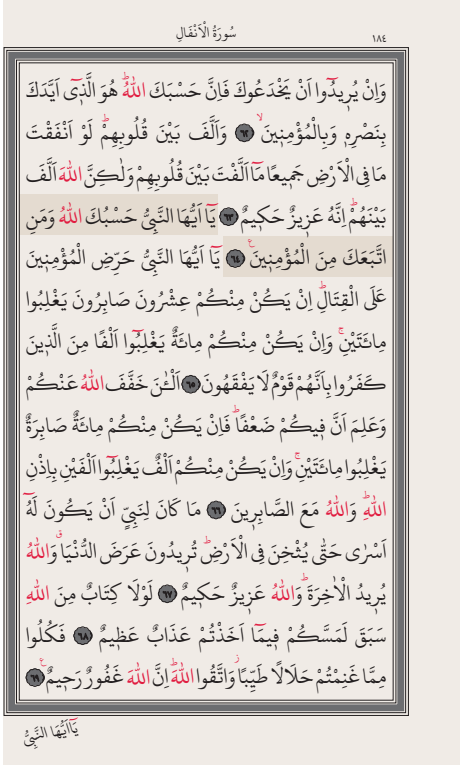 سُورَةُ الْاَنْفَالِ
١٨٤
وَاِنْ يُرِيدُٓوا اَنْ يَخْدَعُوكَ فَاِنَّ حَسْبَكَ اللّٰهُۜ هُوَ الَّذِٓي اَيَّدَكَ
بِنَصْرِهِ وَبِالْمُؤْمِنِينَۙ ﴿٦٢﴾ وَاَلَّفَ بَيْنَ قُلُوبِهِمْۜ لَوْ اَنْفَقْتَ
مَا فِي الْاَرْضِ جَمِيعًا مَٓا اَلَّفْتَ بَيْنَ قُلُوبِهِمْ وَلٰكِنَّ اللّٰهَ اَلَّفَ
بَيْنَهُمْۜ اِنَّهُ عَزِيزٌ حَكِيمٌ ﴿٦٣﴾ يَٓا اَيُّهَا النَّبِيُّ حَسْبُكَ اللّٰهُ وَمَنِ
اتَّبَعَكَ مِنَ الْمُؤْمِنِينَ۟ ﴿٦٤﴾ يَٓا اَيُّهَا النَّبِيُّ حَرِّضِ الْمُؤْمِنِينَ
عَلَى الْقِتَالِۜ اِنْ يَكُنْ مِنْكُمْ عِشْرُونَ صَابِرُونَ يَغْلِبُوا
مِائَتَيْنِۚ وَاِنْ يَكُنْ مِنْكُمْ مِائَةٌ يَغْلِبُٓوا اَلْفًا مِنَ الَّذِينَ
كَفَرُوا بِاَنَّهُمْ قَوْمٌ لَا يَفْقَهُونَ ﴿٦٥﴾ اَلْـٰٔنَ خَفَّفَ اللّٰهُ عَنْكُمْ
وَعَلِمَ اَنَّ فِيكُمْ ضَعْفًاۜ فَاِنْ يَكُنْ مِنْكُمْ مِائَةٌ صَابِرَةٌ
يَغْلِبُوا مِائَتَيْنِۚ وَاِنْ يَكُنْ مِنْكُمْ اَلْفٌ يَغْلِبُٓوا اَلْفَيْنِ بِاِذْنِ
اللّٰهِۜ وَاللّٰهُ مَعَ الصَّابِرِينَ ﴿٦٦﴾ مَا كَانَ لِنَبِيٍّ اَنْ يَكُونَ لَهُٓ
اَسْرٰى حَتّٰى يُثْخِنَ فِي الْاَرْضِۜ تُرِيدُونَ عَرَضَ الدُّنْيَاۗ وَاللّٰهُ
يُرِيدُ الْاٰخِرَةَۜ وَاللّٰهُ عَزِيزٌ حَكِيمٌ ﴿٦٧﴾ لَوْلَا كِتَابٌ مِنَ اللّٰهِ
سَبَقَ لَمَسَّكُمْ فِيمَٓا اَخَذْتُمْ عَذَابٌ عَظِيمٌ ﴿٦٨﴾ فَكُلُوا
مِمَّا غَنِمْتُمْ حَلَالًا طَيِّبًاۘ وَاتَّقُوا اللّٰهَۜ اِنَّ اللّٰهَ غَفُورٌ رَحِيمٌ۟ ﴿٦٩﴾
يَٓا اَيُّهَا النَّبِيُّ